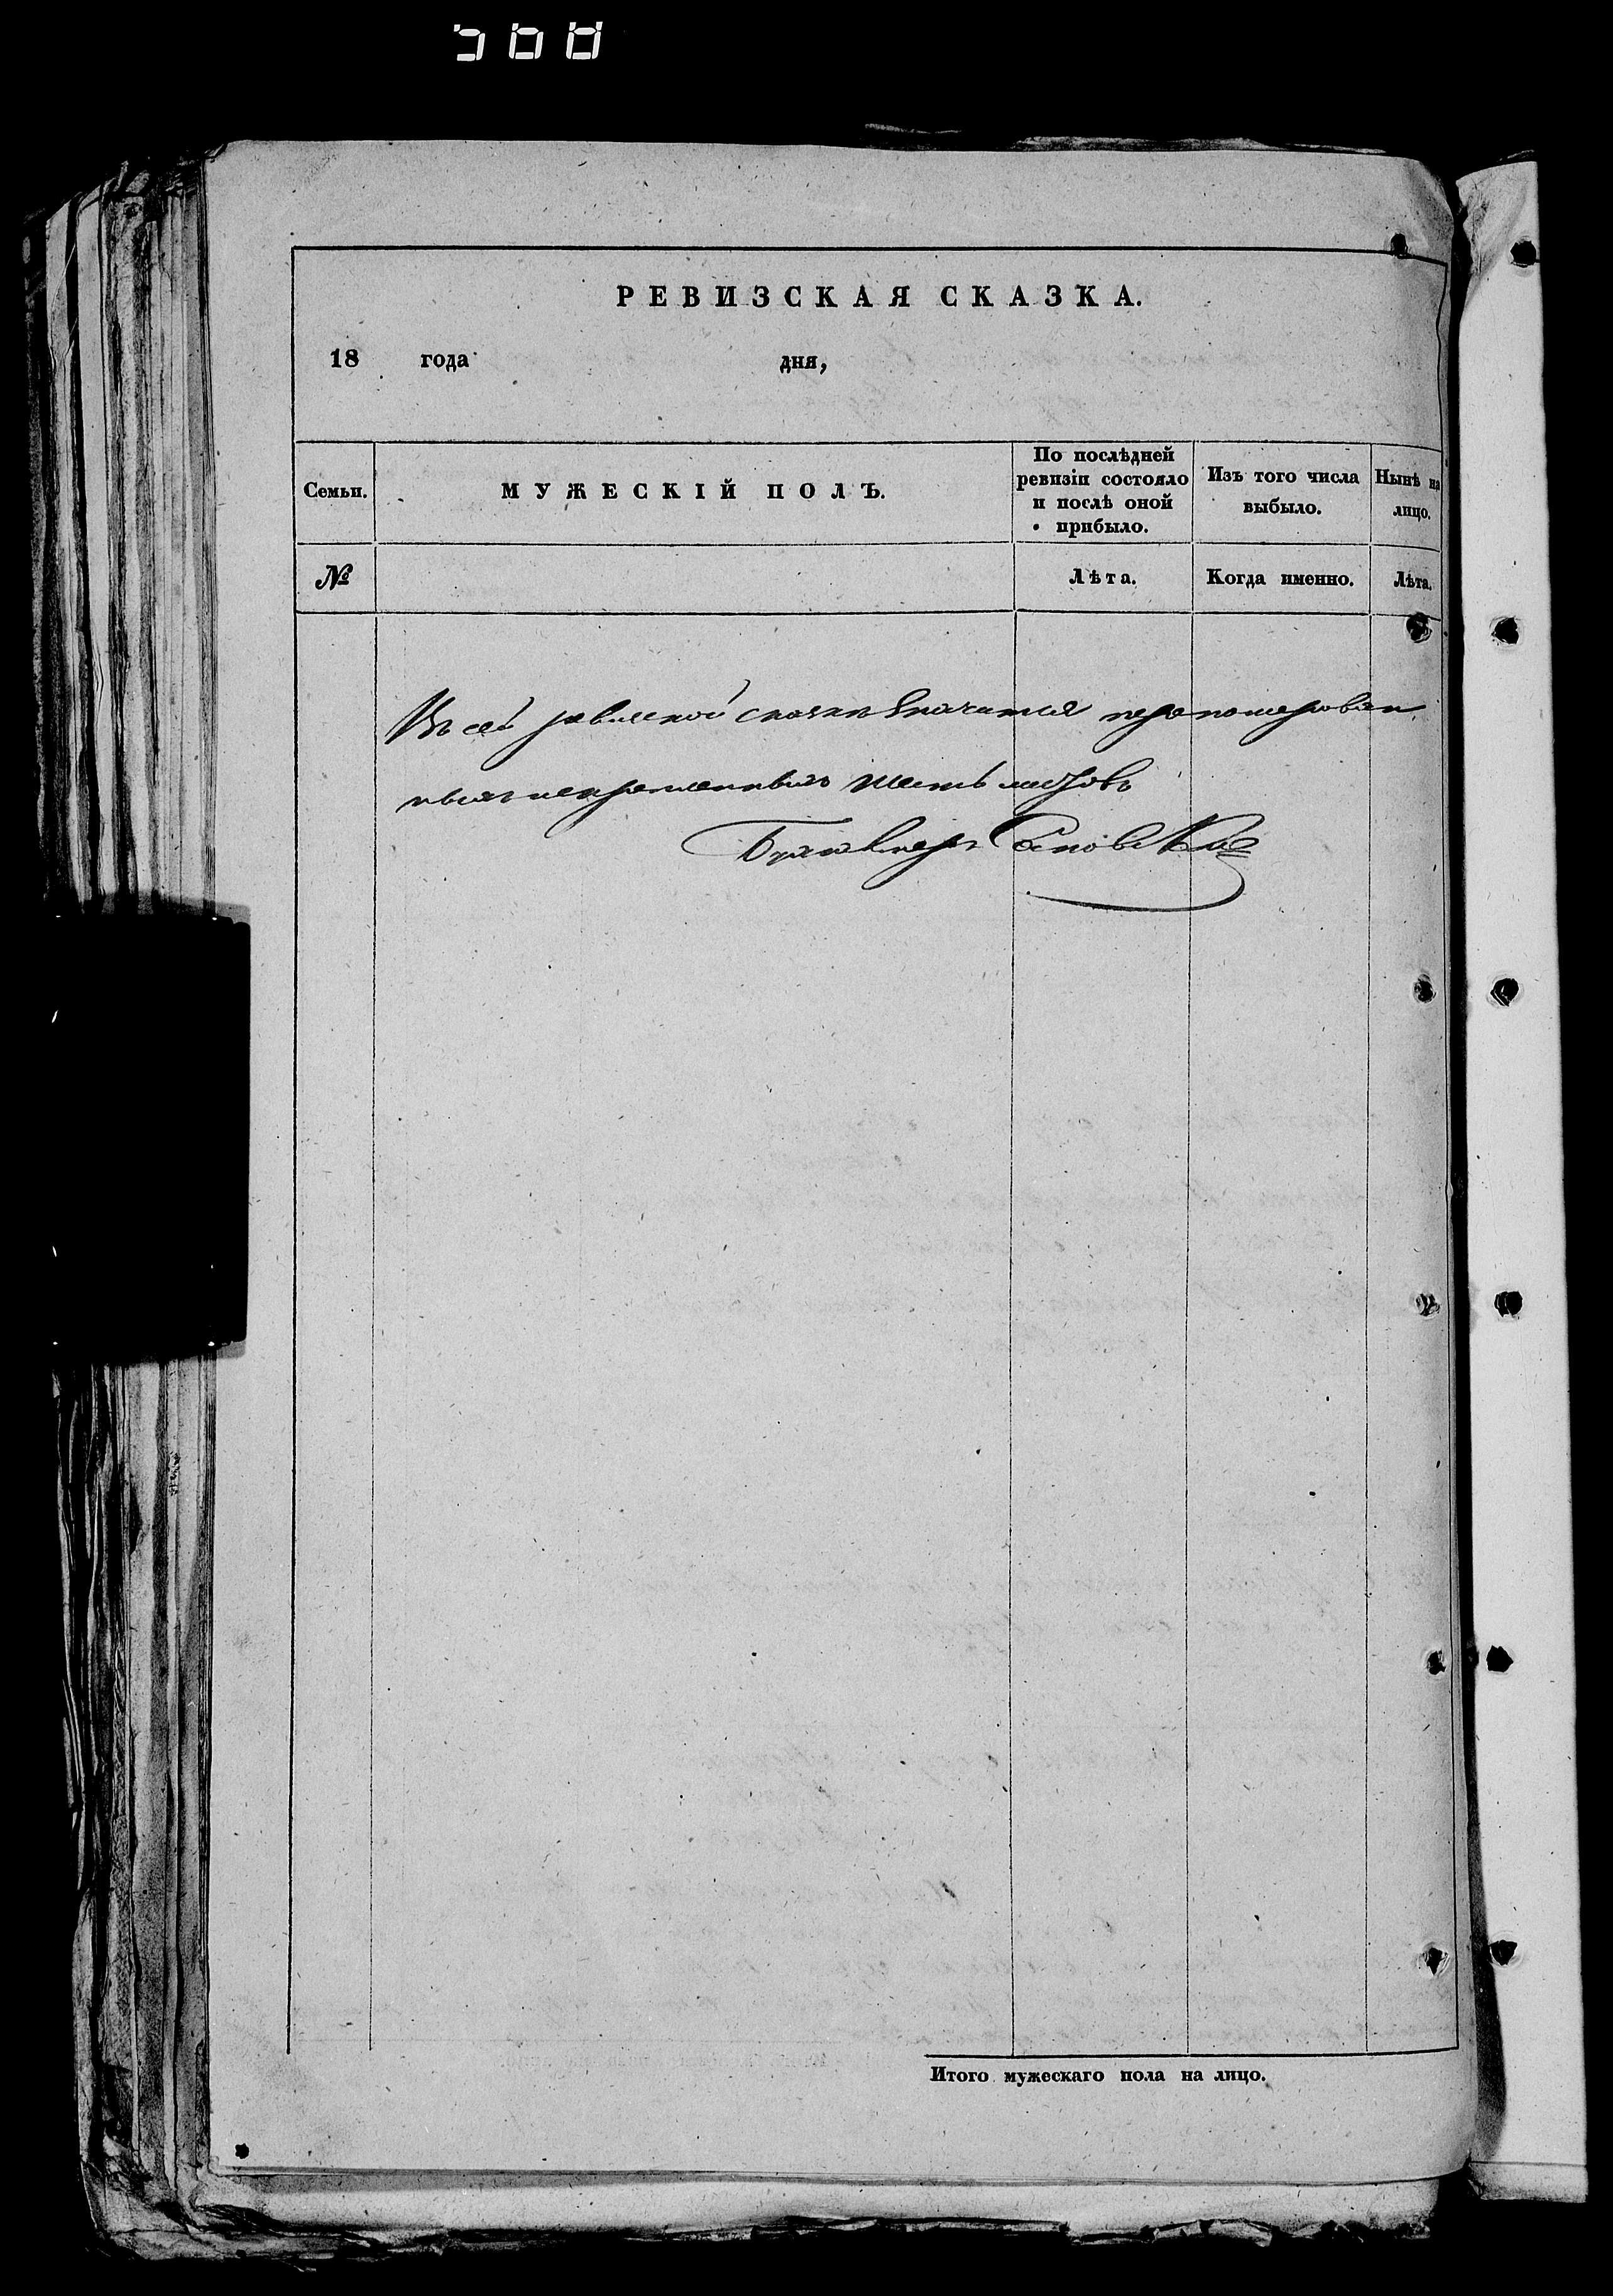 РЕВИЗСКАЯ СКАЗКА.
18 года дня,
Семьи.
МУЖЕСКІЙ ПОЛЪ.
По послѣдней
ревизіи состояло
и послѣ оной
прибыло.
Изъ того числа
выбыло.
Нынѣ на
лицо.
№
Лѣта.
Когда именно.
Лѣта.
Въ сей ревиской сказкѣ значится перономерован
ныхъ и скрепленныхъ шесть листовъ
Бухгалтеръ
Итого мужескаго пола на лицо.